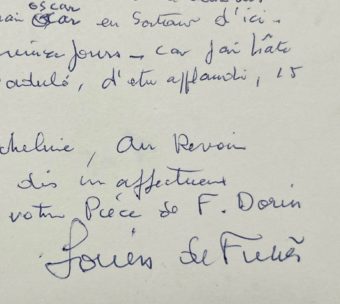 oscar
en sortant d'ici -
jours - car j'ai hâte
adulé, d'etre applaudi, 15
cheline, au Revoir
dis un affectueux
votre Pièce de F. Dorin
Louis de Funès